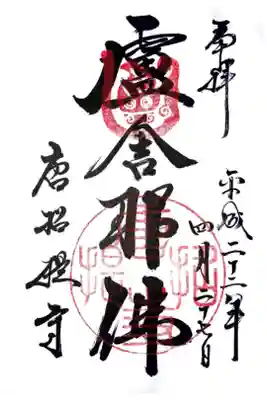 奉拝
平成二十一年
四月二十七日
盧舎那佛
唐招提寺